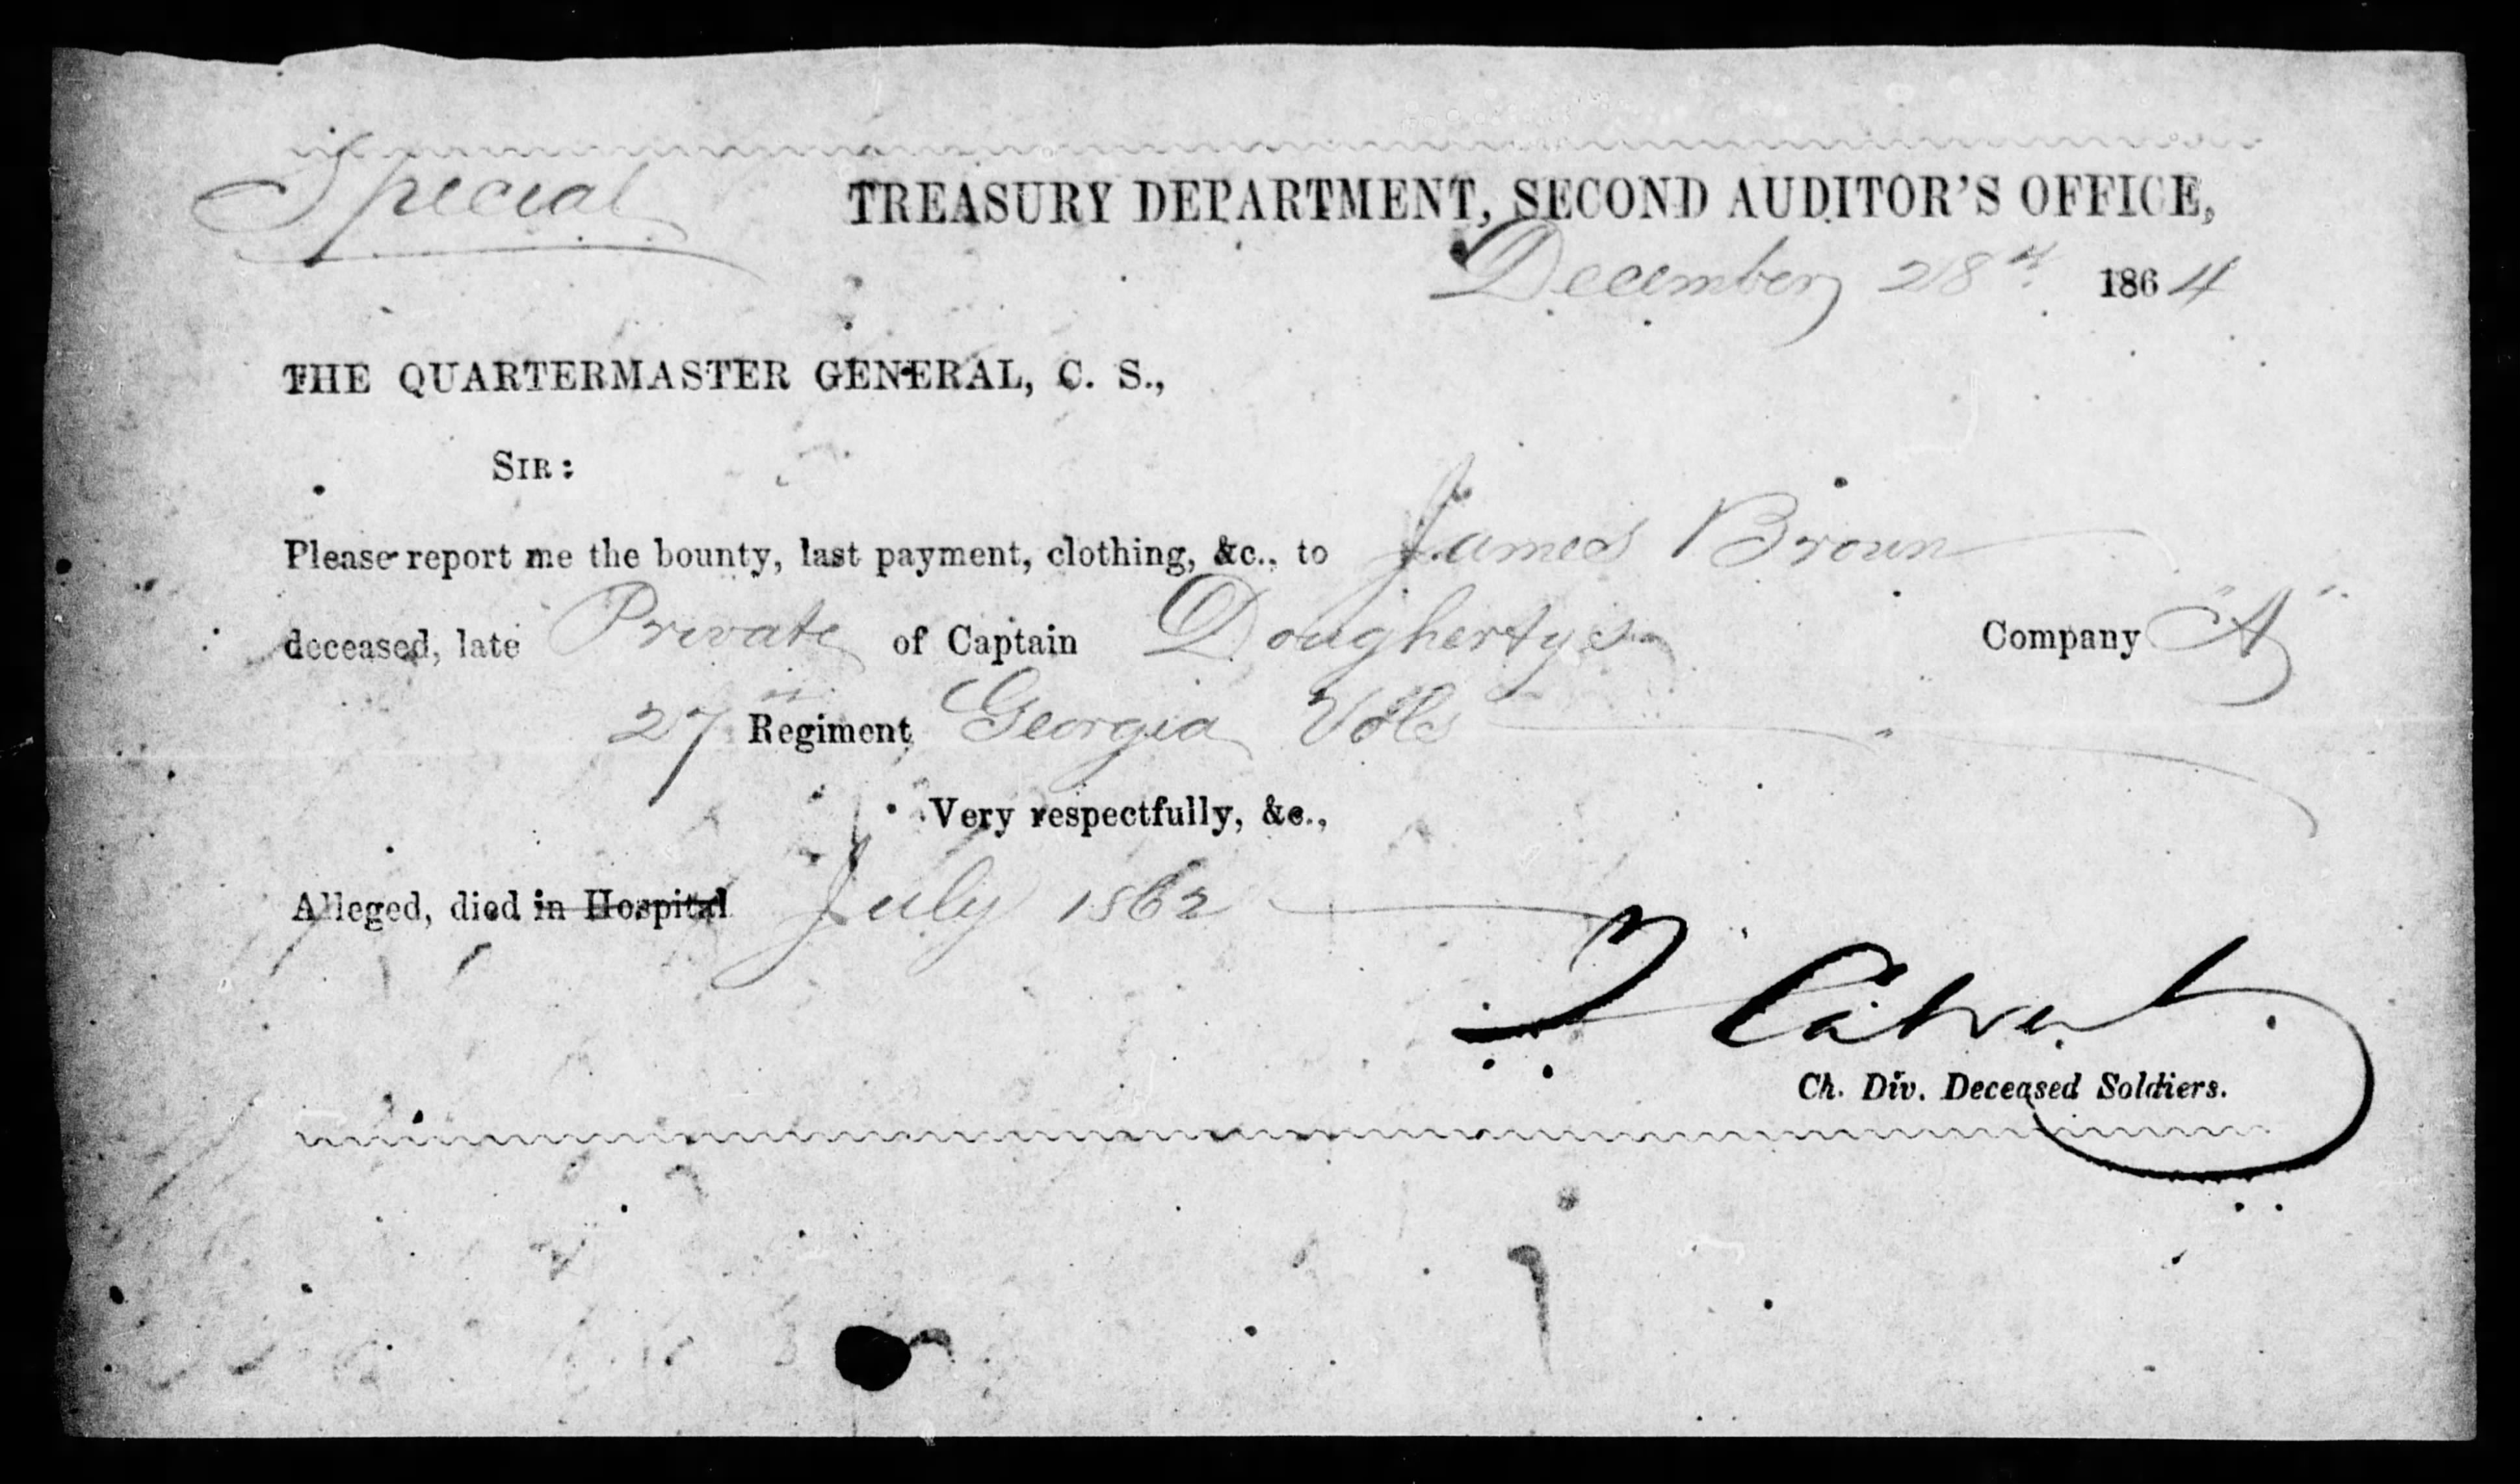 Special
TREASURY DEPARTMENT, SECOND AUDITOR'S OFFICE,
December 28th 1864
THE QUARTERMASTER GENERAL, C. S.,
SIR:
Please report me the bounty, last payment, clothing, &c., to James Brown
deceased, late Private of Captain Doughertys Company "A"
27th Regiment Georgia Vols
Very respectfully, &c.,
Alleged, died in Hospital July 1862
Calvert
Ch. Div. Deceased Soldiers.